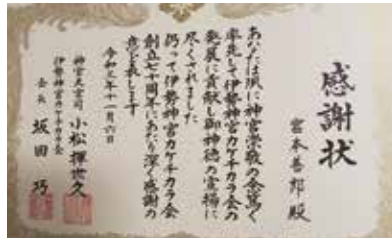 感謝状
宮本善郎殿
あなたは夙に神宮崇敬の念篤く
率先して伊勢神宮カケチカラ会の
発展に貢献し御神徳の宣揚に
尽くされました
仍って伊勢神宮カケチカラ会
創立七十周年にあたり深く感謝の
意を表します
令和元年十一月六日
神宮大宮司 小松揮世久
伊勢神宮カケチカラ会
会長 坂田巧